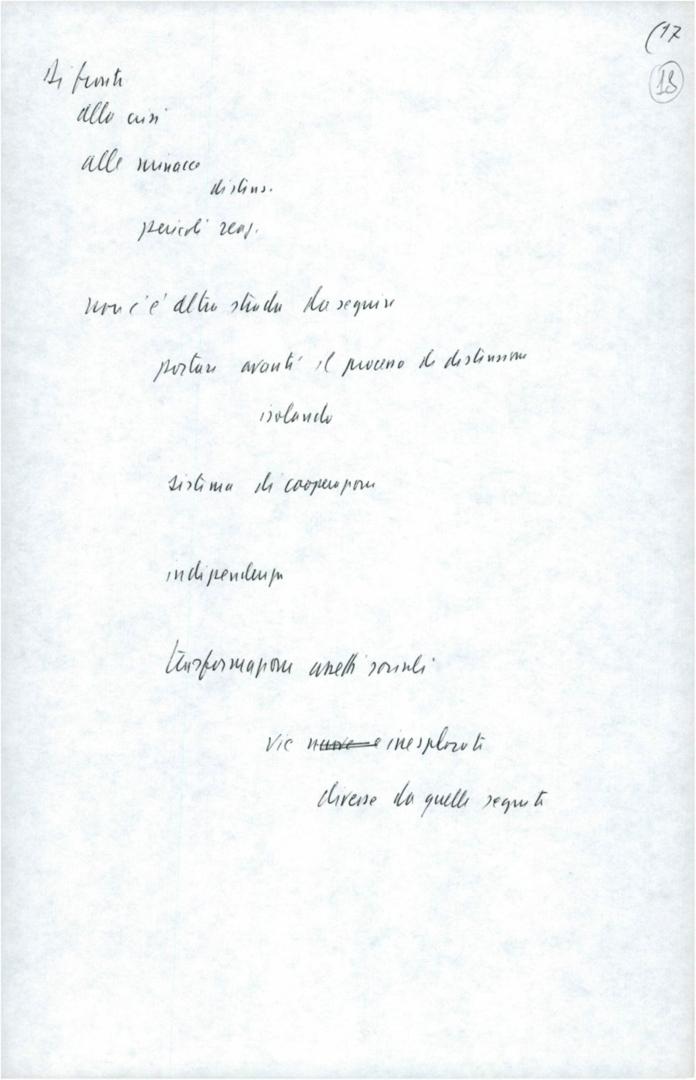 (17
18
Di fronte
alla crisi
alle minacce
distens.
pericoli reaz.
non c'è altra strada da seguire
portare avanti il processo di distensione
isolando
sistema di cooperazione
indipendenza
trasformazione assetti sociali
vie nuove e inesplorate
diverse da quelle seguite